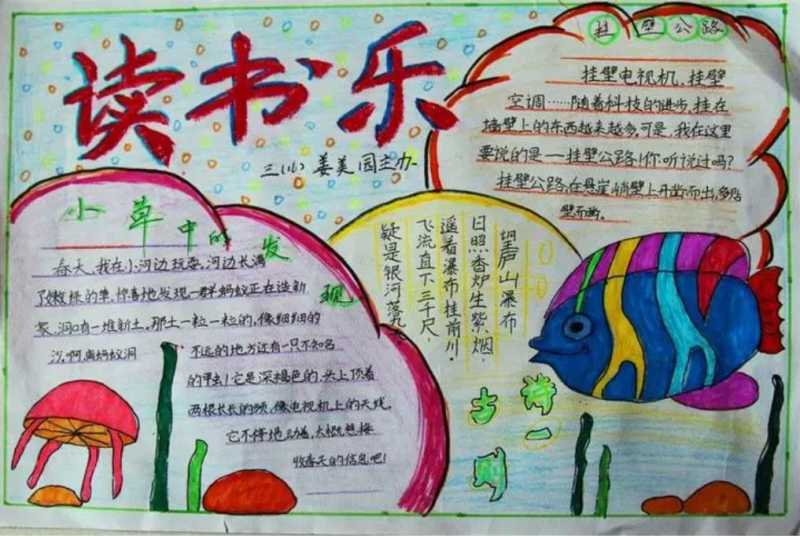 读书乐
三(山) 姜美园主办
挂壁公路
挂壁电视机、挂壁
空调……随着科技的进步,挂在
墙壁上的东西越来越多,可是,我在这里
要说的是——挂壁公路!你听说过吗?
挂壁公路,在悬崖峭壁上开凿而出,
壁而凿。
小草中的发现
春天,我在小河边玩耍,河边长满
了嫩绿的草,惊喜地发现一群蚂蚁正在造新
家,洞口有一堆新土,那土一粒一粒的,像细细的
沙,啊,蚂蚁洞
不远的地方还有一只不知名
的甲虫!它是深褐色的,头上顶着
两根长长的须,像电视机上的天线,
它不停地动着,大概想接
收春天的信息吧!
古诗一则
望庐山瀑布
日照香炉生紫烟,
遥看瀑布挂前川。
飞流直下三千尺
疑是银河落九